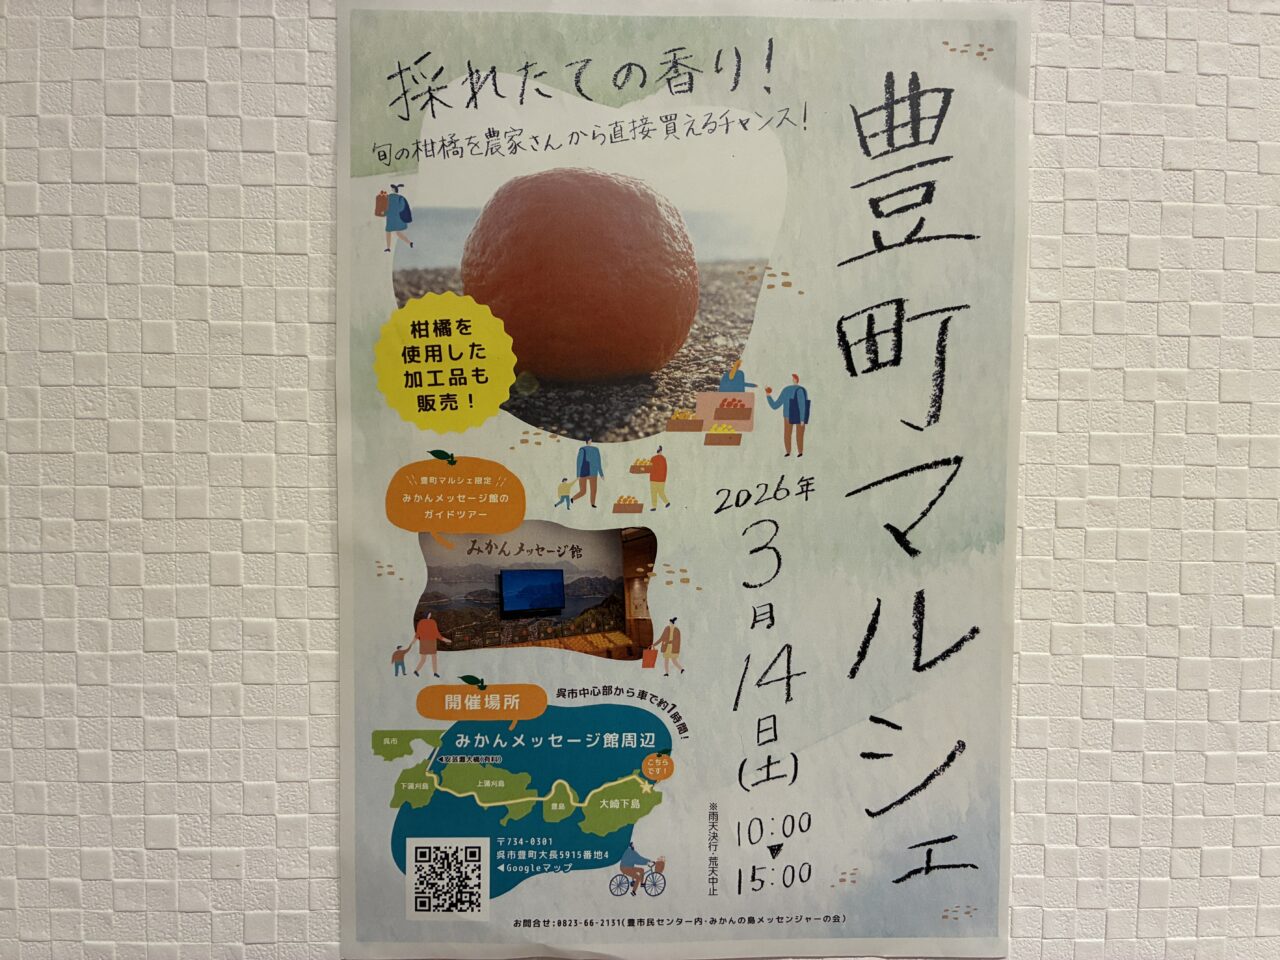 採れたての香り！
旬の柑橘を農家さんから直接買えるチャンス！
豊町マルシェ
柑橘を
使用した
加工品も
販売！
2026年
3月
14日
(土)
10:00
▼
15:00
※雨天決行・荒天中止
豊町マルシェ限定
みかんメッセージ館の
ガイドツアー
みかんメッセージ館
開催場所
呉市中心部から車で約1時間！
みかんメッセージ館周辺
呉市
◀安芸灘大橋(有料)
下蒲刈島
上蒲刈島
豊島
大崎下島
こちら
です！
〒734-0301
呉市豊町大長5915番地4
◀Googleマップ
お問合せ:0823-66-2131(豊市民センター内・みかんの島メッセンジャーの会)